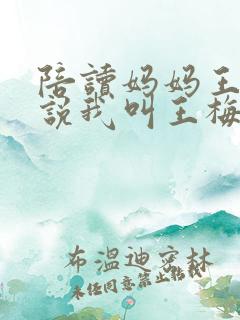 陪讀妈妈王
説我叫王梅
布温迪密林
未经同意禁止转载